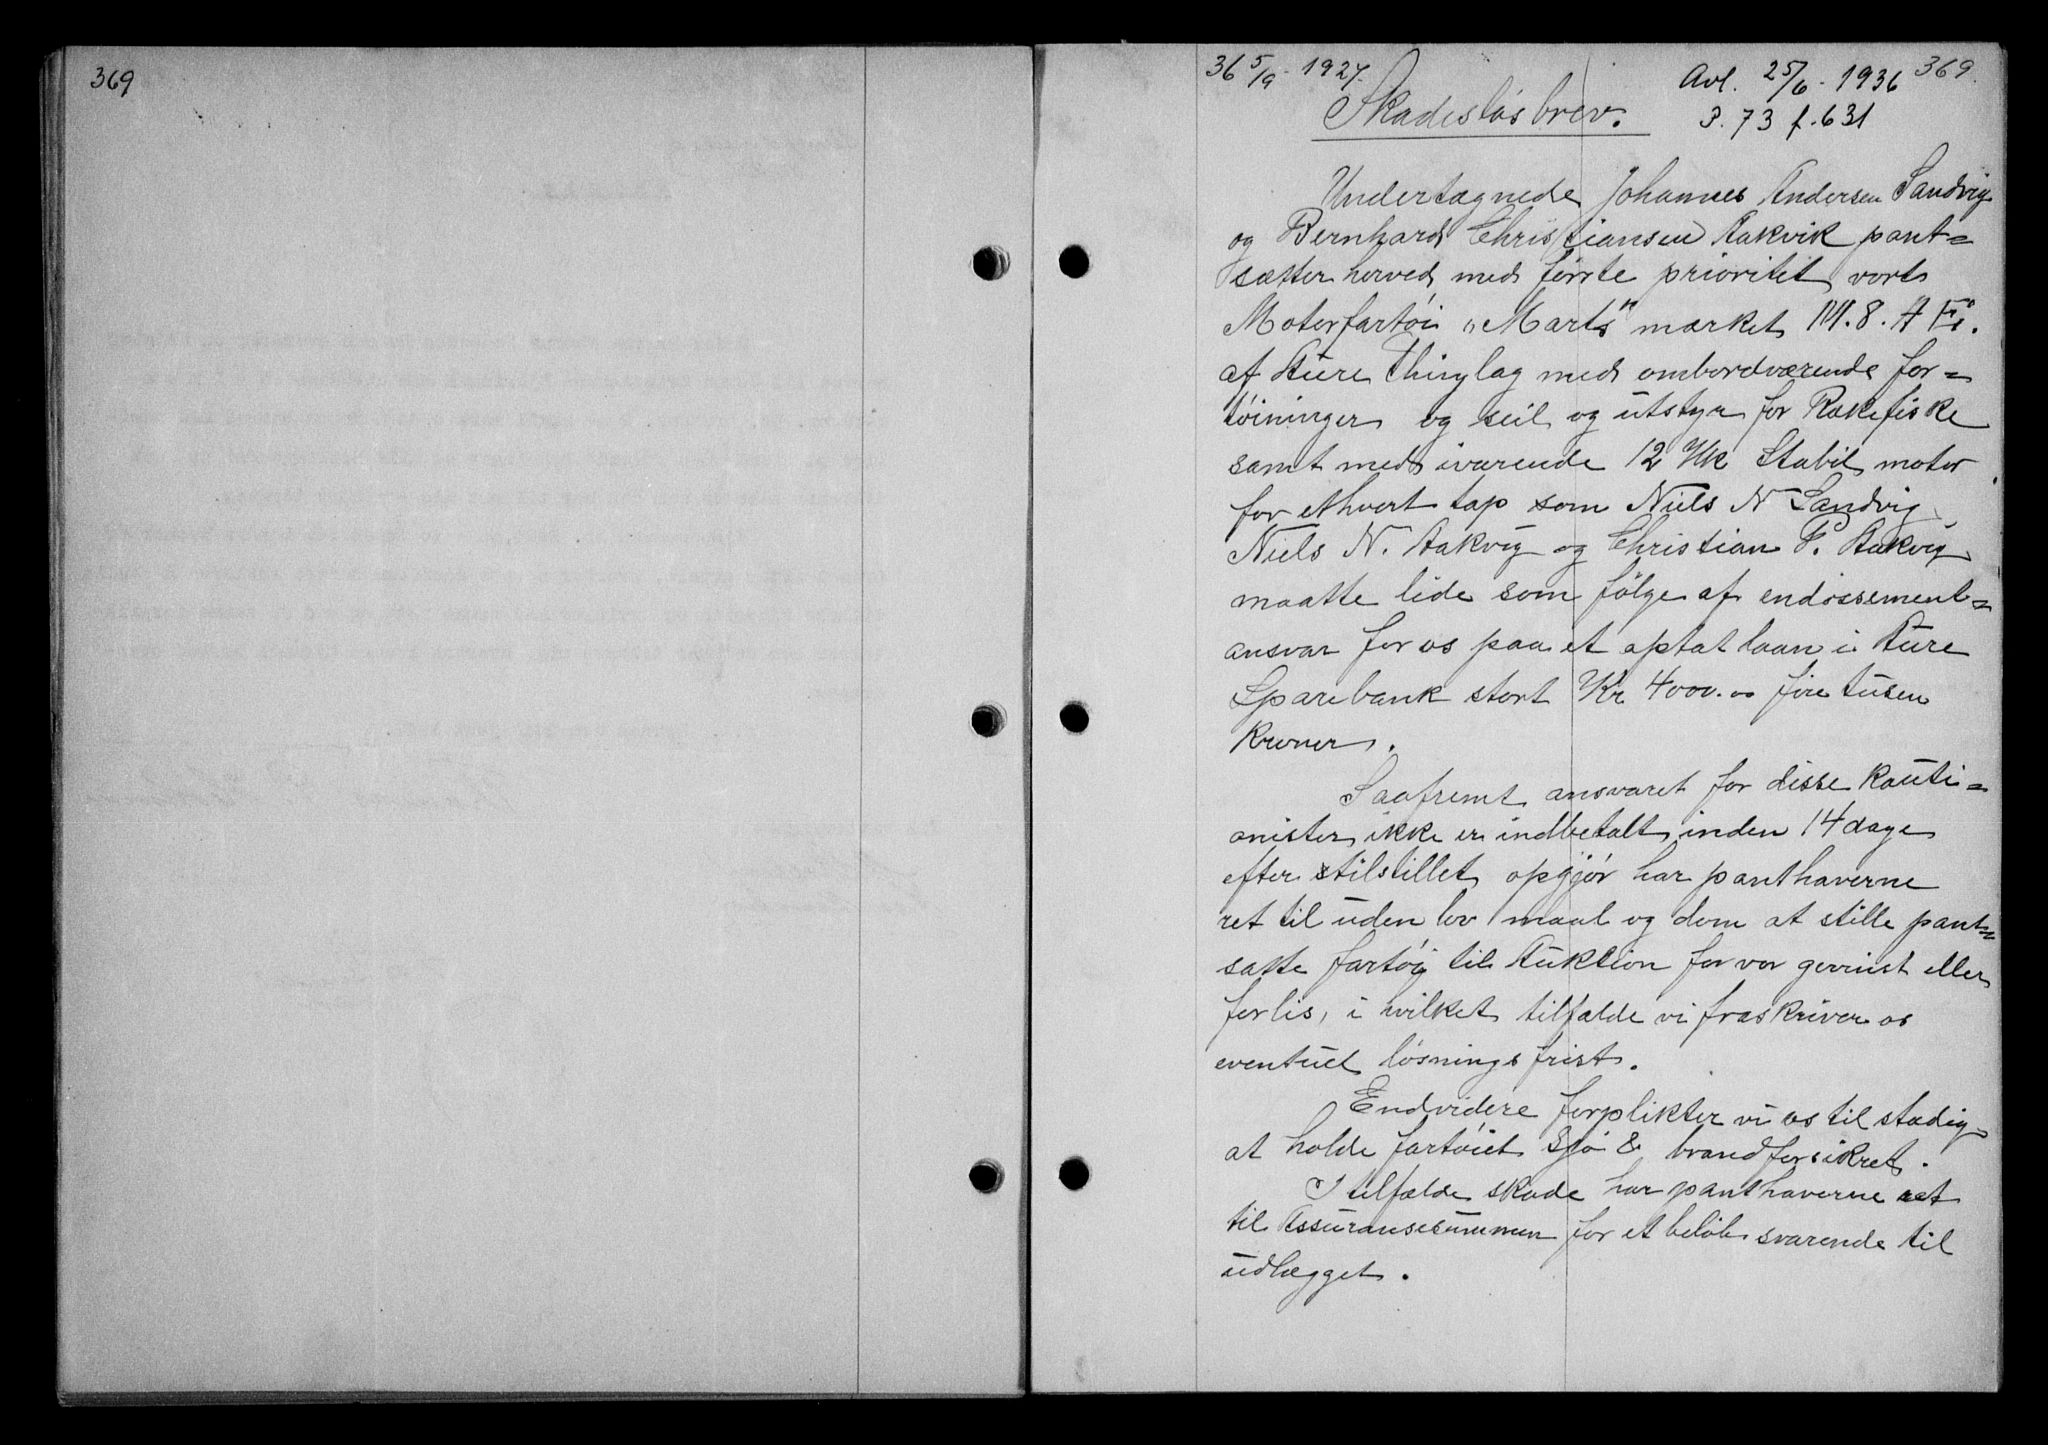 369
36 5/9 - 1927.
Avl. 25/6 - 1936 369.
P. 73 f. 631
Skadesløsbrev.
Undertegnede Johannes Andersen Sandvig
og Bernhard Christiansen Aakvik pant=
sætter herved med første prioritet vort
Motorfartøi "Marts" mærket M. 8. A E.
af Aure Thinglag med ombordværende for=
tøininger og seil og utstyr for Rækefiske
samt med ivarende 12 Hk Stabil motor
for ethvert tap som Niels N Sandvig
Niels N. Aakvig og Christian P. Aakvig
maatte lide som følge af endossement=
ansvar for os paa et optat laan i Aure
Sparebank stort Kr 4000.00 fire tusen
Kroner.
Saafremt ansvaret for disse Kauti=
onister ikke er indbetalt inden 14 dage
efter tilstillet opgjør har panthaverne
ret til uden lov maal og dom at stille pant=
satte fartøj til Auktion for vor gevinst eller
forlis, i hvilket tilfælde vi fraskriver os
eventuel løsningsfrist.
Endvidere forplikter vi os til stadig
at holde fartøiet sjø & brandforsikret.
I tilfælde skade har panthaverne ret
til Assuransesummen for et beløb svarende til
udlægget.